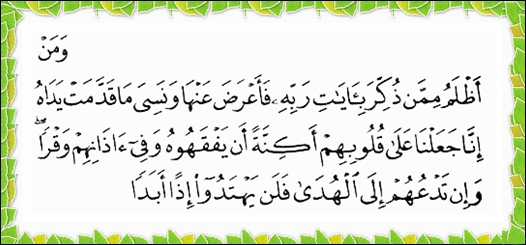 وَمَنْ
أَظْلَمُ مِمَّن ذُكِّرَ بِـَٔايَٰتِ رَبِّهِۦ فَأَعْرَضَ عَنْهَا وَنَسِىَ مَا قَدَّمَتْ يَدَاهُ
إِنَّا جَعَلْنَا عَلَىٰ قُلُوبِهِمْ أَكِنَّةً أَن يَفْقَهُوهُ وَفِىٓ ءَاذَانِهِمْ وَقْرًاۖ
وَإِن تَدْعُهُمْ إِلَى ٱلْهُدَىٰ فَلَن يَهْتَدُوٓا۟ إِذًا أَبَدًا